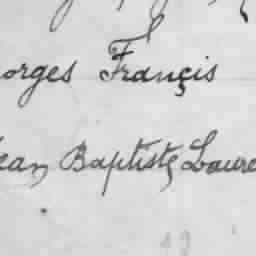 orges Françis
ean Baptiste Laure